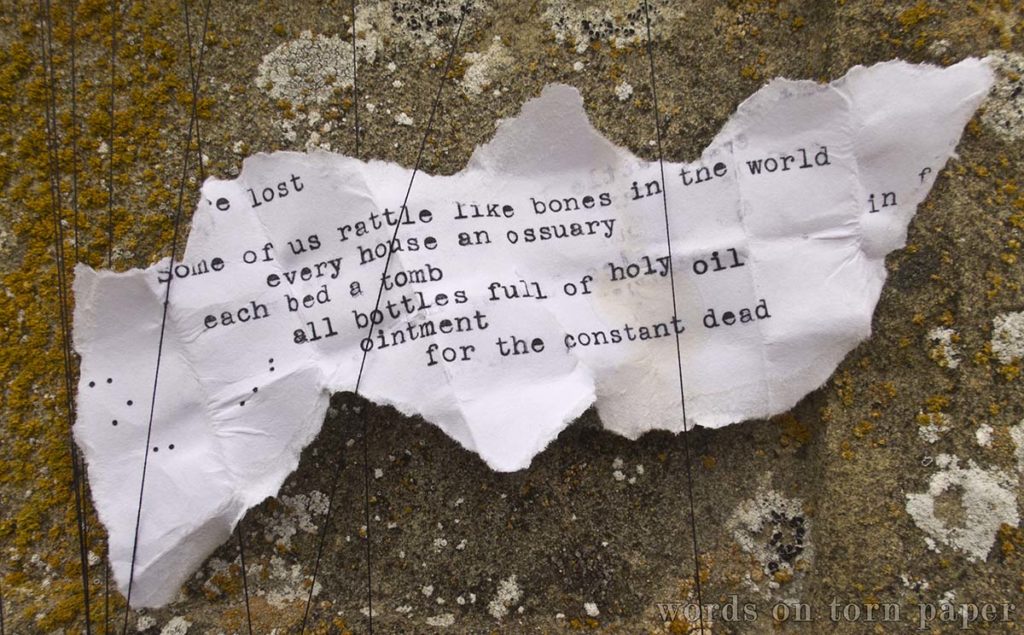 e lost
Some of us rattle like bones in the world
in f
every house an ossuary
each bed a tomb
all bottles full of holy oil
ointment
for the constant dead
words on torn paper